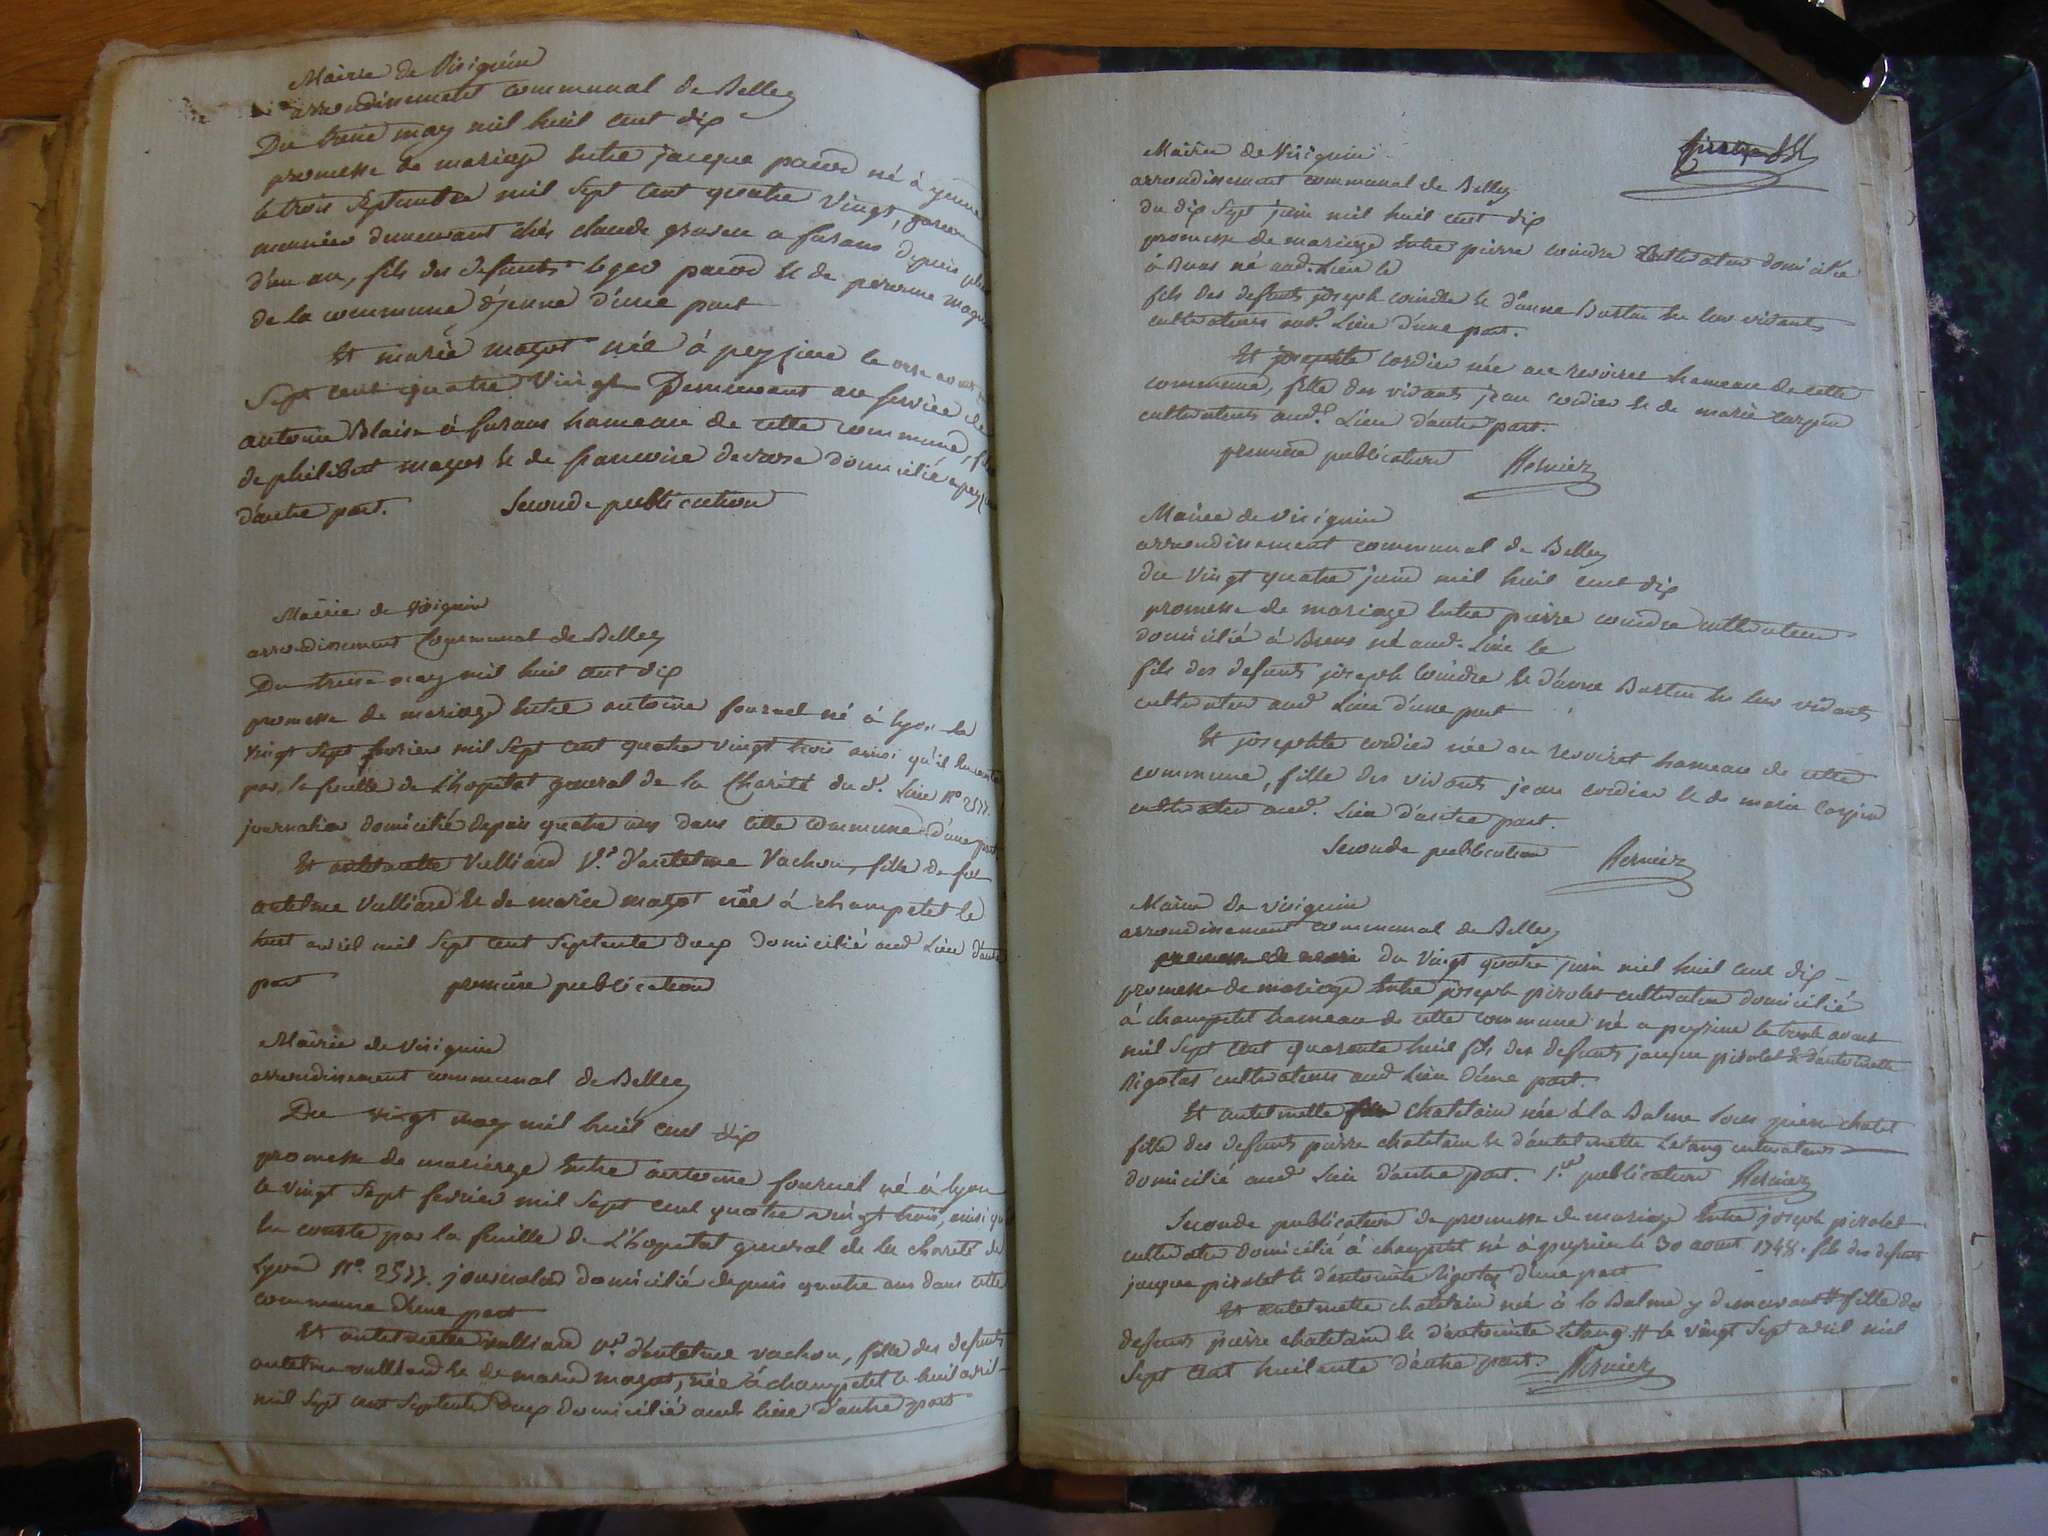 Mairie de Virignin
arrondissement communal de Belley
Du treize may mil huit cent dix
promesse de mariage entre jacque pacod né à yenne
le trois Septembre mil Sept cent quatre vingt, garcon
meunier demeurant chés claude gruseu a furans depuis plus
d'un an, fils des defunts leger pacod et de perronne
de la commune d'jenne d'une part
Et marie mazot née à peyzieu le onze
Sept cent quatre vingt Demeurant au service de
antoine Blaise à furans hameau de cette commune,
de philibert mazot et de francoise devose domicilié a
d'autre part. Seconde publication
Mairie de virignin
arrondissement Communal de Belley
Du treize may mil huit cent dix
promesse de mariage entre antoine fournel né à lyon le
vingt Sept fevrier mil Sept cent quatre vingt trois ainsi qu'il
par la feuille de L'hopital general de la Charité du d. Lieu N° 2577.
journalier domicilié depuis quatre ans dans cette commune d'une part
Et antelmette Vulliard V.e d'antelme Vachon, fille de feu
antelme Vulliard et de marie mazot née à champetel le
huit avril mil Sept cent Septente deux domicilié aud Lieu d'autre
part premiere publication
Mairie de virignin
arrondissement communal de Belley
Du vingt may mil huit cent dix
promesse de mariage entre antoine fournel né à Lyon
le vingt Sept fevrier mil Sept cent quatre vingt trois, ainsi qu
en conste par la feuille de L'hopital general de la charité de
Lyon N°. 2577. journalier domicilié depuis quatre ans dans cette
commune d'une part
Et antelmette vulliard V.e d'antelme vachon, fille des defunts
antelme vulliard et de marie mazot, née à champetel le huit avril
mil Sept cent Septente Deux domicilié aud Lieu d'autre part
Mairie de Virignin
arrondissement communal de Belley
du dix Sept juin mil huit cent dix
promesse de mariage entre pierre coindre cultivateur domicilié
à Brens né aud. Lieu le
fils des defunts joseph coindre et d'anne Bustin de leur vivants
cultivateurs aud. Lieu d'une part.
Et josephte cordier née au revoiret hameau de cette
commune, fille des vivants jean cordier et de marie carpin
cultivateurs aud. Lieu d'autre part.
premiere publication Bernier
Mairie de virignin
arrondissement communal de Belley
du vingt quatre juin mil huit cent dix
promesse de mariage entre pierre coindre cultivateur
domicilié à Brens né aud. Lieu le
fils des defunts joseph coindre et d'anne Bustin de leur vivants
cultivateur aud Lieu d'une part
Et josephte cordier née au revoiret hameau de cette
commune, fille des vivants jean cordier et de marie carpin
cultivateur aud. Lieu d'autre part.
Seconde publication Bernier
Mairie de virignin
arrondissement communal de Belley
promesse de mari du vingt quatre juin mil huit cent dix
promesse de mariage entre joseph pirolet cultivateur domicilié
à champetel hameau de cette commune né a peyzieu le trente aoust
mil Sept cent quarente huit fils des defunts jacque pirolet et d'antelmette
Rigotas cultivateurs aud Lieu d'une part.
Et antelmette fille chatelain née à la Balme Sous pierre chatel
fille des defunts pierre chatelain et d'antelmette Letang cultivateurs
domicilié aud Lieu d'autre part. 1.re publication Bernier
Seconde publication de promesse de mariage entre joseph pirolet
cultivateur domicilié à champetel né à peyzieu le 30 aout 1748. fils des defunts
jacque pirolet et d'antoinette Rigotas d'une part
Et antelmette chatelain née à la Balme y demeurant # fille des
defunts pierre chatelain et d'antoinette Letang # le vingt Sept avril mil
Sept cent huitante d'autre part. Bernier